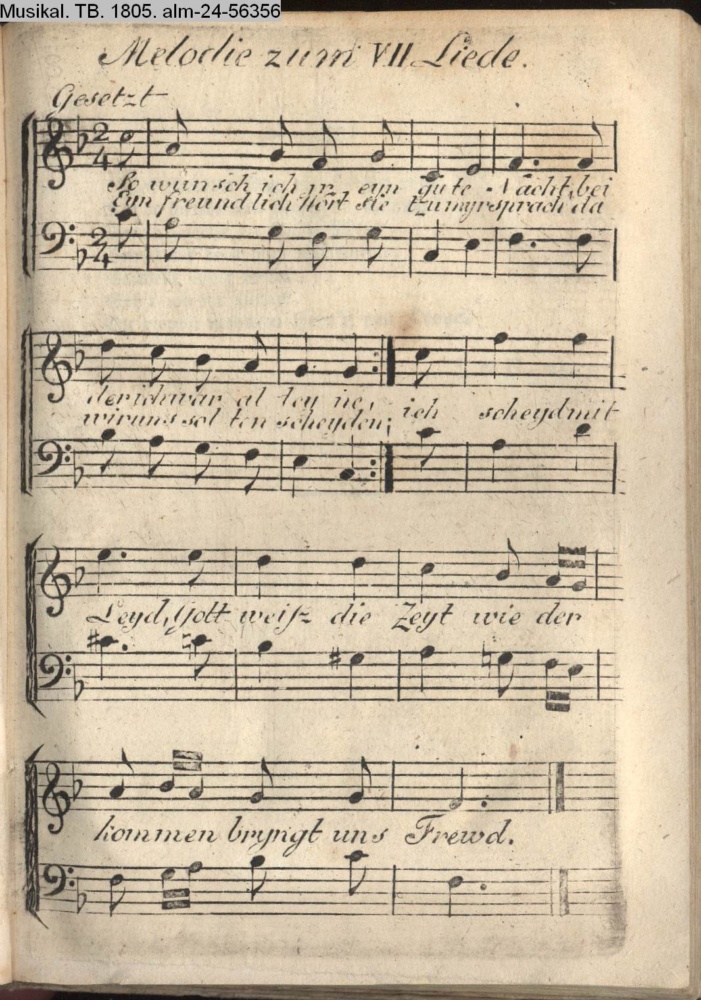 Musikal. TB. 1805. alm-24-56356
Melodie zum VII Liede.
Gesetzt
2/4
So wünsch ich ir eyn gute Nacht, bei
Eyn freundlich Wort sie tzu myr sprach, da
2/4
der ich war al ley ne,
wir uns sol ten scheyden;
ich scheyd mit
Leyd, Gott weiſz die Zeyt wie der
kommen bryngt uns Frewd.